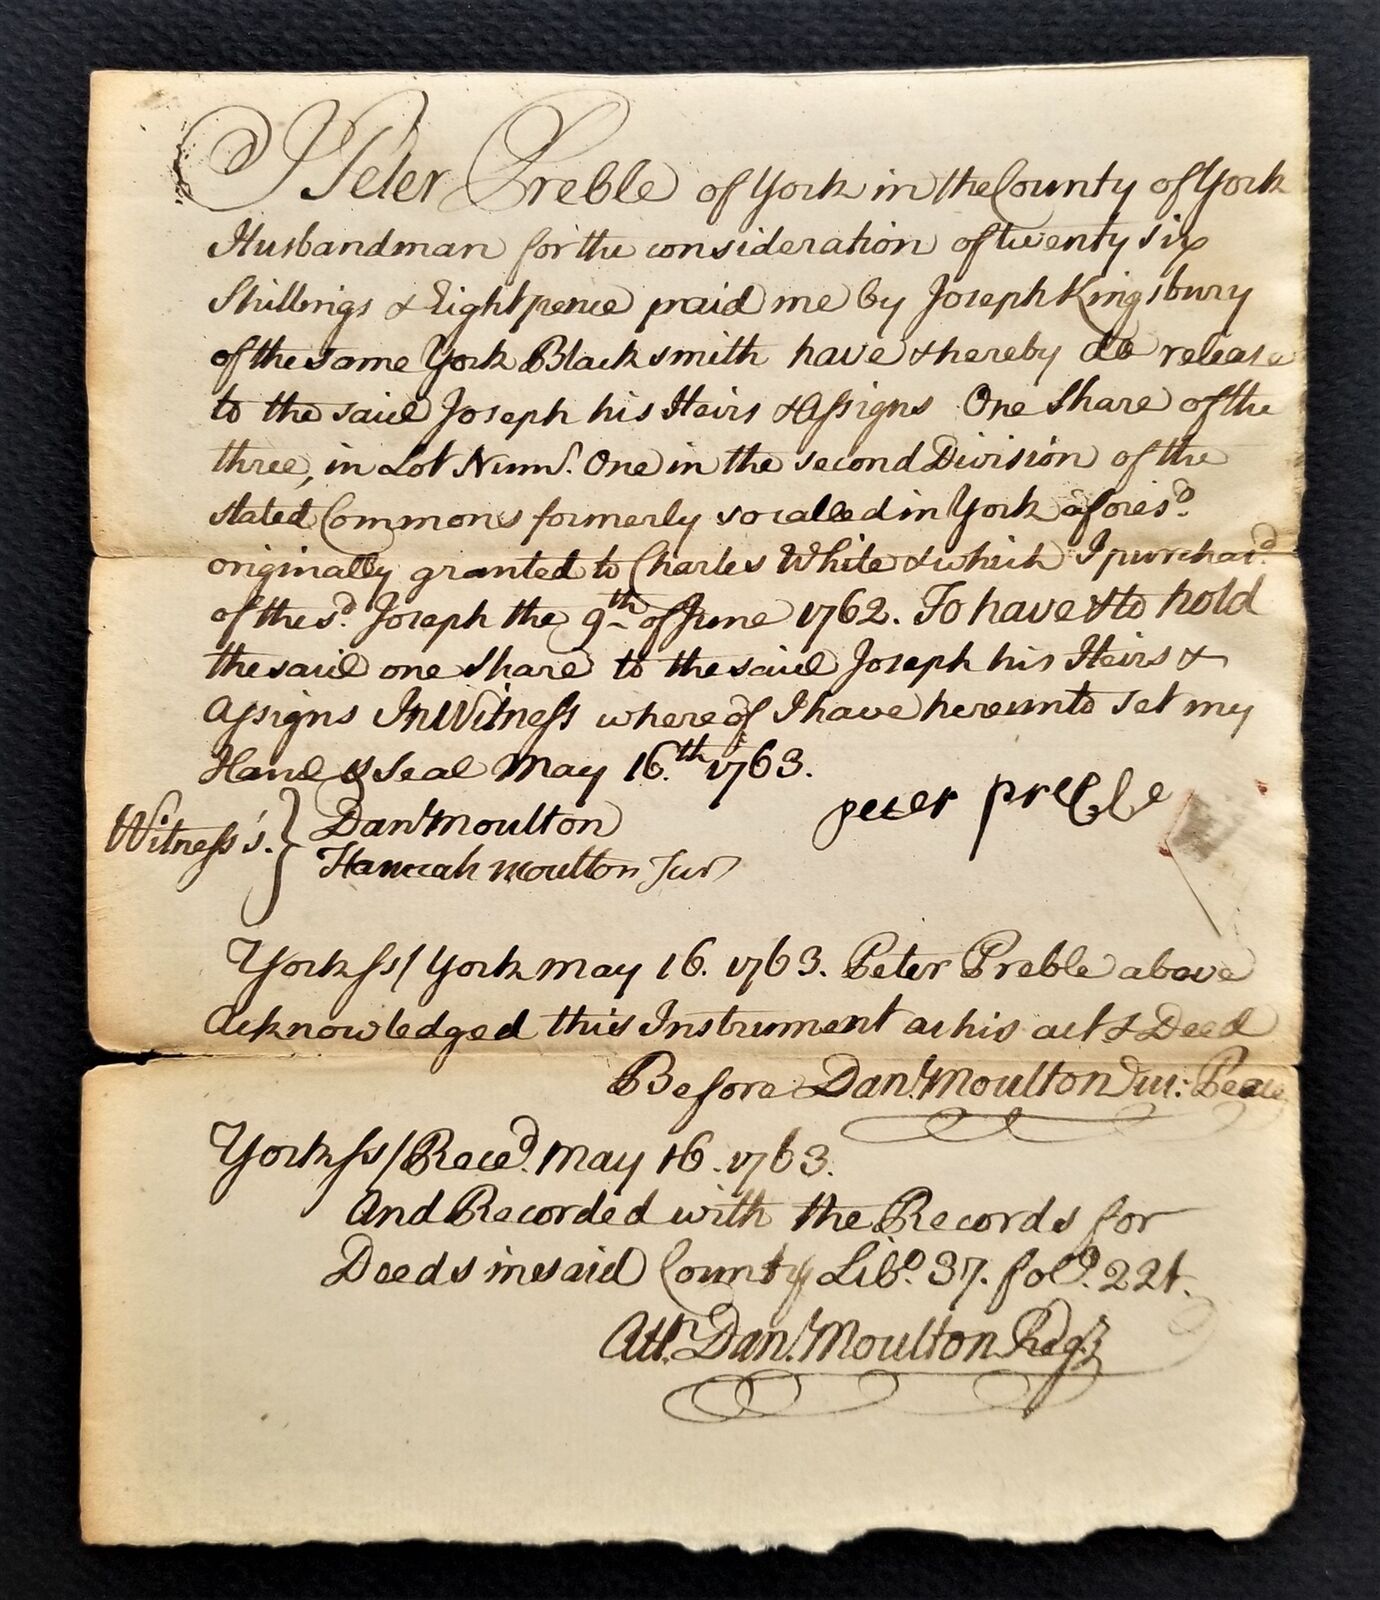 I Peter Preble of York in the County of York
Husbandman for the consideration of twenty six
Shillings & Eight pence paid me by Joseph Kingsbury
of the same York Blacksmith have & hereby do release
to the said Joseph his Heirs & Assigns One Share of the
three, in Lot Numr. One in the second Division of the
stated Commons formerly so called in York aforesd.
originally granted to Charles White & which I purchasd.
of the sd. Joseph the 9th of June 1762. To have & to hold
the said one Share to the said Joseph his Heirs &
Assigns In Witness whereof I have hereunto set my
Hand & Seal May 16.th 1763.
peter preble
Witness's. } Danl. Moulton
Hannah Moulton Jur
York ss/ York May 16. 1763. Peter Preble above
Acknowledged this Instrument as his act & Deed
Before Danl. Moulton Jus: Peace
York ss/ Recd. May 16. 1763.
And Recorded with the Records for
Deeds in said County Libo. 37. folo. 221.
Attr. Danl. Moulton Regr.